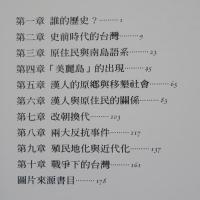 第一章 誰的歷史？………1
第二章 史前時代的台灣………9
第三章 原住民與南島語系………23
第四章「美麗島」的出現………45
第五章 漢人的原鄉與移墾社會………65
第六章 漢人與原住民的關係………83
第七章 改朝換代………103
第八章 兩大反抗事件………117
第九章 殖民地化與近代化………137
第十章 戰爭下的台灣………161
圖片來源書目………178